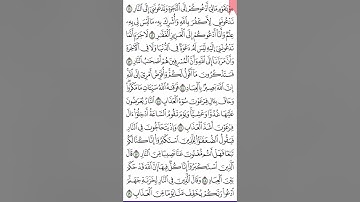 ۞ وَيَٰقَوْمِ مَا لِيٓ أَدْعُوكُمْ إِلَى ٱلنَّجَوٰةِ وَتَدْعُونَنِيٓ إِلَى ٱلنَّارِ ٤١
تَدْعُونَنِي لِأَكْفُرَ بِٱللَّهِ وَأُشْرِكَ بِهِۦ مَا لَيْسَ لِي بِهِۦ
عِلْمٌ وَأَنَا۠ أَدْعُوكُمْ إِلَى ٱلْعَزِيزِ ٱلْغَفَّٰرِ ٤٢ لَا جَرَمَ أَنَّمَا
تَدْعُونَنِيٓ إِلَيْهِ لَيْسَ لَهُۥ دَعْوَةٌ فِي ٱلدُّنْيَا وَلَا فِي ٱلْأٓخِرَةِ
وَأَنَّ مَرَدَّنَآ إِلَى ٱللَّهِ وَأَنَّ ٱلْمُسْرِفِينَ هُمْ أَصْحَٰبُ ٱلنَّارِ ٤٣
فَسَتَذْكُرُونَ مَآ أَقُولُ لَكُمْ وَأُفَوِّضُ أَمْرِيٓ إِلَى
ٱللَّهِ إِنَّ ٱللَّهَ بَصِيرٌۢ بِٱلْعِبَادِ ٤٤ فَوَقَىٰهُ ٱللَّهُ سَيِّـَٔاتِ مَا مَكَرُوا۟
وَحَاقَ بِـَٔالِ فِرْعَوْنَ سُوٓءُ ٱلْعَذَابِ ٤٥ ٱلنَّارُ يُعْرَضُونَ
عَلَيْهَا غُدُوًّا وَعَشِيًّا وَيَوْمَ تَقُومُ ٱلسَّاعَةُ أَدْخِلُوٓا۟ ءَالَ
فِرْعَوْنَ أَشَدَّ ٱلْعَذَابِ ٤٦ وَإِذْ يَتَحَآجُّونَ فِي ٱلنَّارِ
فَيَقُولُ ٱلضُّعَفَٰٓؤُا۟ لِلَّذِينَ ٱسْتَكْبَرُوٓا۟ إِنَّا كُنَّا لَكُمْ
تَبَعًا فَهَلْ أَنتُم مُّغْنُونَ عَنَّا نَصِيبًا مِّنَ ٱلنَّارِ ٤٧
قَالَ ٱلَّذِينَ ٱسْتَكْبَرُوٓا۟ إِنَّا كُلٌّ فِيهَآ إِنَّ ٱللَّهَ قَدْ حَكَمَ
بَيْنَ ٱلْعِبَادِ ٤٨ وَقَالَ ٱلَّذِينَ فِي ٱلنَّارِ لِخَزَنَةِ جَهَنَّمَ
ٱدْعُوا۟ رَبَّكُمْ يُخَفِّفْ عَنَّا يَوْمًا مِّنَ ٱلْعَذَابِ ٤٩